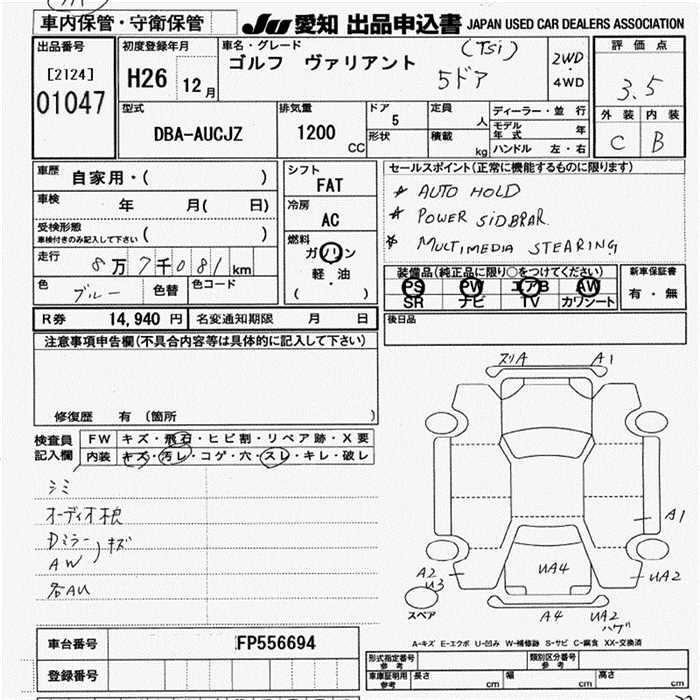 車内保管・守衛保管
JU 愛知 出品申込書 JAPAN USED CAR DEALERS ASSOCIATION
出品番号
[2124]
01047
初度登録年月
H26 12 月
車名・グレード
ゴルフ ヴァリアント (TSi)
5ドア
2WD
4WD
評価点
3.5
外装 内装
C B
型式
DBA-AUCJZ
排気量
1200 CC
ドア 5
形状
定員 人
積載 kg
ディーラー・並行
モデル年式 年
ハンドル 左・右
車歴 自家用・( )
車検 年 月( 日)
受検形態
車検付きのみ記入して下さい ( )
走行 8万7千081km
色 ブルー 色替 色コード
シフト
FAT
冷房
AC
燃料
ガソリン
軽・油
( )
セールスポイント(正常に機能するものに限ります)
☆ AUTO HOLD
☆ POWER SIDBRAR
☆ MULTIMEDIA STEARING
装備品(純正品に限り○をつけてください)
PS PW エアB AW
SR ナビ TV カワシート
新車保証書
有・無
R券 14,940 円 名変通知期限 月 日
後日品
注意事項申告欄(不具合内容等は具体的に記入して下さい)
修復歴 有 〔箇所 〕
検査員記入欄
FW キズ・飛石・ヒビ割・リペア跡・X要
内装 キズ・汚レ・コゲ・穴・スレ・キレ・破レ
シミ
オーディオ枠
Dミラー
AW
キズ
各AU
スリA A1
A1
A2
U3
UA4
UA2
スペア
A4 UA2
ハゲ
車台番号 FP556694
登録番号
A-キズ E-エクボ U-凹み W-補修跡 S-サビ C-腐食 XX-交換済
形式指定番号 参考
類別区分番号 参考
車庫証明用 参考 長さ cm 幅 cm 高さ cm